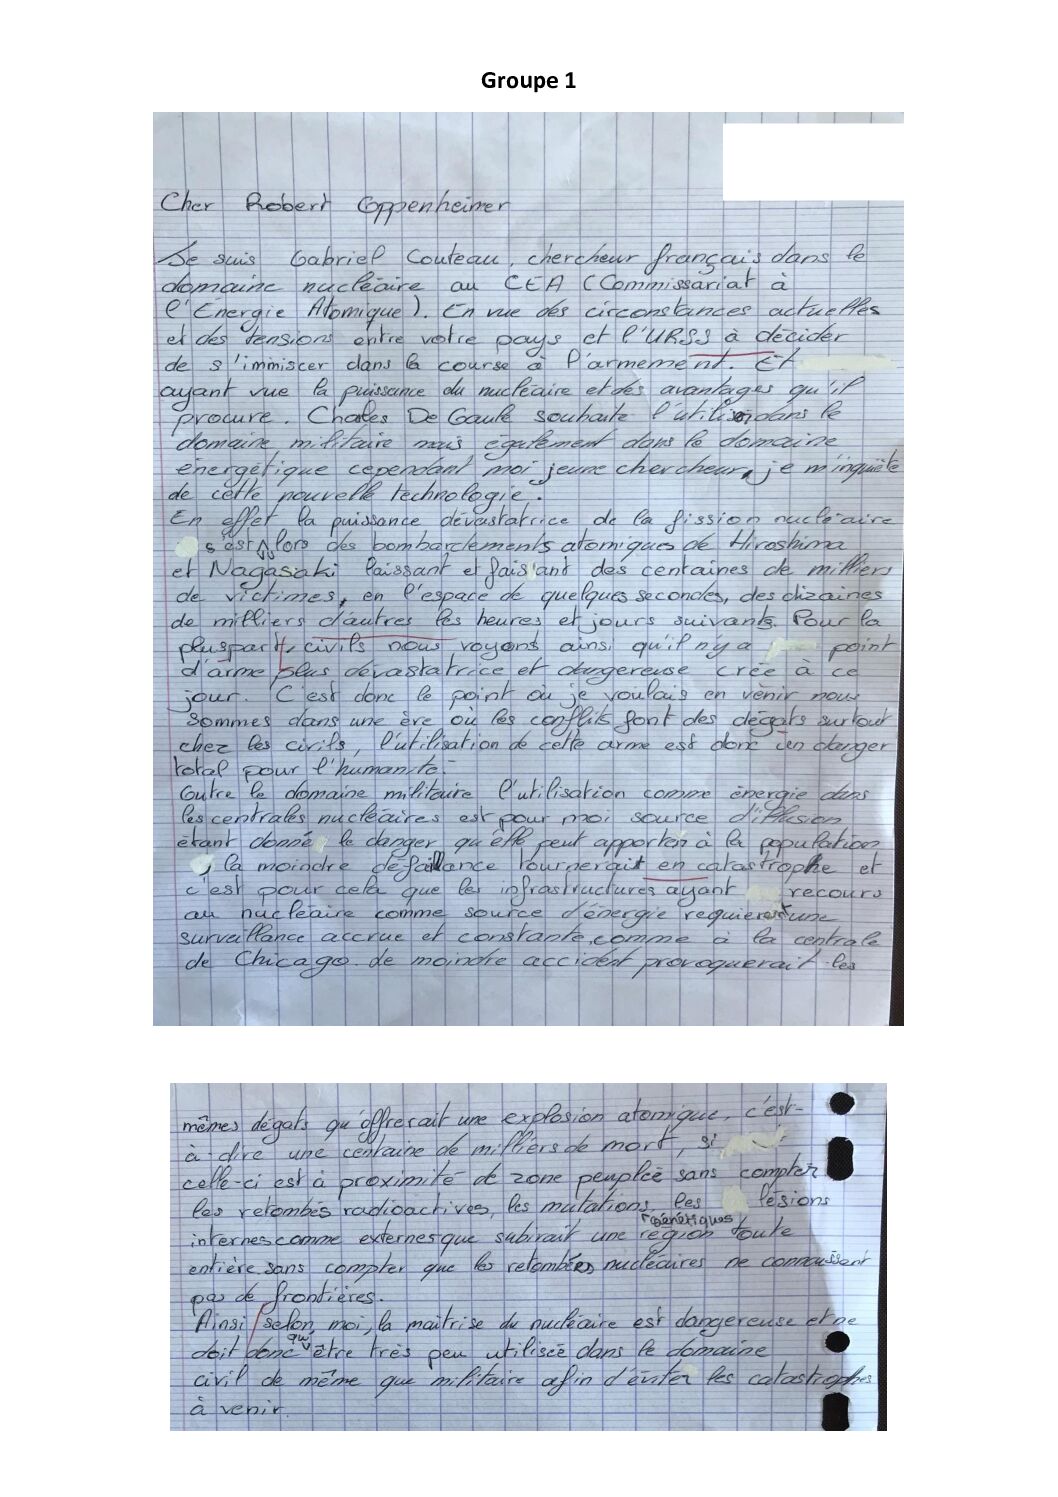 Groupe 1
Cher Robert Oppenheimer
Je suis Gabriel Couteau, chercheur français dans le
domaine nucléaire au CEA (Commissariat à
l'Énergie Atomique). En vue des circonstances actuelles
et des tensions entre votre pays et l'URSS à décider
de s'immiscer dans la course à l'armement. Et
ayant vue la puissance du nucléaire et des avantages qu'il
procure. Charles De Gaule souhaite l'utiliser dans le
domaine militaire mais également dans le domaine
énergétique cependant moi jeune chercheur, je m'inquiète
de cette nouvelle technologie.
En effet la puissance dévastatrice de la fission nucléaire
s'est lors des bombardements atomiques de Hiroshima
et Nagasaki laissant et faisant des centaines de milliers
de victimes, en l'espace de quelques secondes, des dizaines
de milliers d'autres les heures et jours suivants. Pour la
pluspart, civils nous voyons ainsi qu'il n'y a point
d'arme plus dévastatrice et dangereuse crée à ce
jour. C'est donc le point où je voulais en venir nous
sommes dans une ère où les conflits font des dégats surtout
chez les civils, l'utilisation de cette arme est donc un danger
total pour l'humanité.
Outre le domaine militaire l'utilisation comme énergie dans
les centrales nucléaires est pour moi source d'illusion
étant donné le danger qu'elle peut apporter à la population
, la moindre défaillance tournerait en catastrophe et
c'est pour cela que les infrastructures ayant recours
au nucléaire comme source d'énergie requierent une
surveillance accrue et constante, comme à la centrale
de Chicago. de moindre accident provoquerait les
mêmes dégats qu'offrerait une explosion atomique, c'est-
à-dire une centaine de milliers de mort, si
celle-ci est à proximité de zone peuplée sans compter
les retombés radioactives, les mutations, les lésions
génétiques
internes comme externes que subirait une région toute
entière sans compter que les retombées nucléaires ne connaissent
pas de frontières.
Ainsi selon moi, la maitrise du nucléaire est dangereuse et ne
doit donc qu' être très peu utilisée dans le domaine
civil de même que militaire afin d'éviter les catastrophes
à venir.